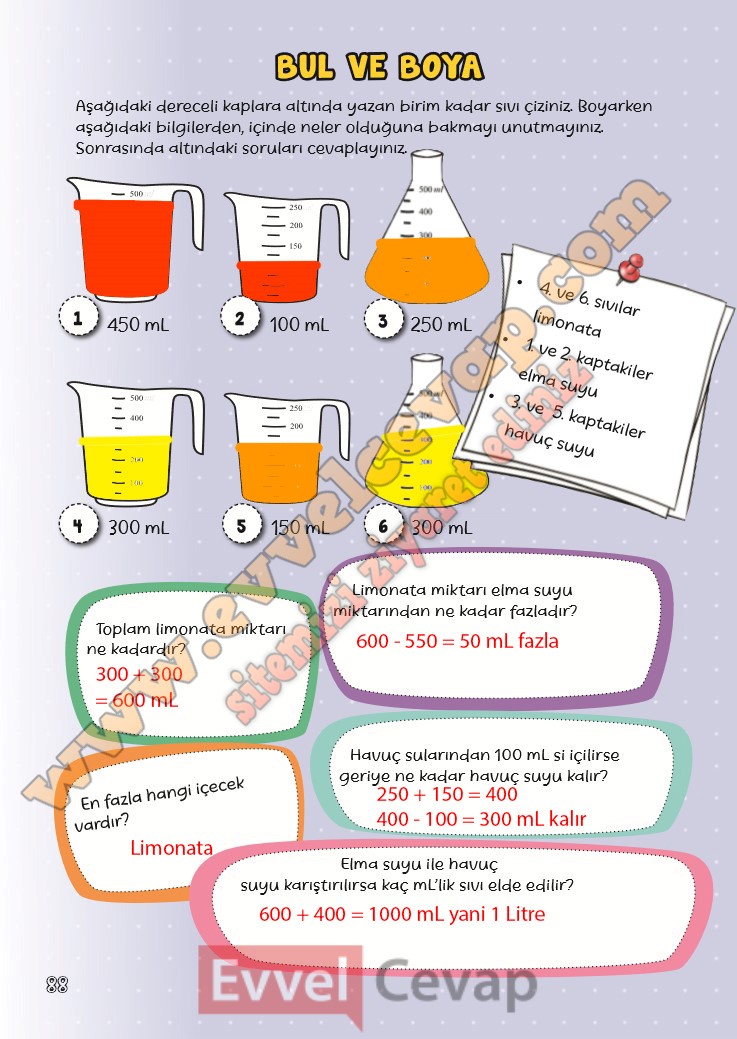 BUL VE BOYA
Aşağıdaki dereceli kaplara altında yazan birim kadar sıvı çiziniz. Boyarken
aşağıdaki bilgilerden, içinde neler olduğuna bakmayı unutmayınız.
Sonrasında altındaki soruları cevaplayınız.
500
250
200
150
500 ml
400
300
1 450 mL
2 100 mL
3 250 mL
• 4. ve 6. sıvılar
limonata
• 1. ve 2. kaptakiler
elma suyu
• 3. ve 5. kaptakiler
havuç suyu
500
400
200
100
250
200
400
300
200
100
4 300 mL
5 150 mL
6 300 mL
Toplam limonata miktarı
ne kadardır?
300 + 300
= 600 mL
Limonata miktarı elma suyu
miktarından ne kadar fazladır?
600 - 550 = 50 mL fazla
En fazla hangi içecek
vardır?
Limonata
Havuç sularından 100 mL si içilirse
geriye ne kadar havuç suyu kalır?
250 + 150 = 400
400 - 100 = 300 mL kalır
Elma suyu ile havuç
suyu karıştırılırsa kaç mL'lik sıvı elde edilir?
600 + 400 = 1000 mL yani 1 Litre
88
Evvel Cevap
www.evvelcevap.com
sitemizi ziyaret ediniz